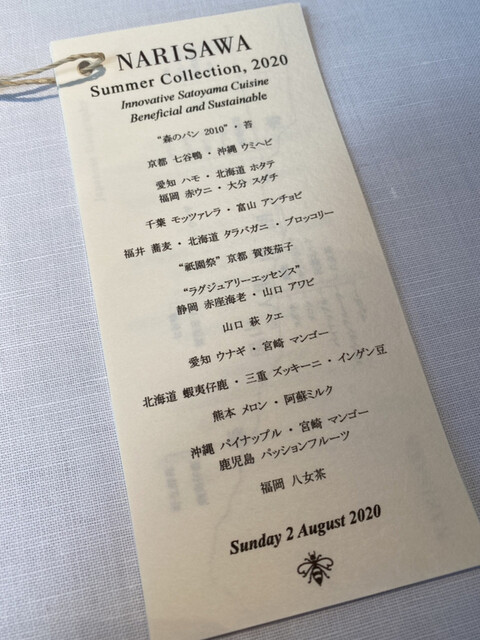 NARISAWA
Summer Collection, 2020
Innovative Satoyama Cuisine
Beneficial and Sustainable
“森のパン 2010”・苔
京都 七谷鴨・沖縄 ウミヘビ
愛知 ハモ・北海道 ホタテ
福岡 赤ウニ・大分 スダチ
千葉 モッツァレラ・富山 アンチョビ
福井 蕎麦・北海道 タラバガニ・ブロッコリー
“祇園祭” 京都 賀茂茄子
“ラグジュアリーエッセンス”
静岡 赤座海老・山口 アワビ
山口 萩 クエ
愛知 ウナギ・宮崎 マンゴー
北海道 蝦夷仔鹿・三重 ズッキーニ・インゲン豆
熊本 メロン・阿蘇ミルク
沖縄 パイナップル・宮崎 マンゴー
鹿児島 パッションフルーツ
福岡 八女茶
Sunday 2 August 2020